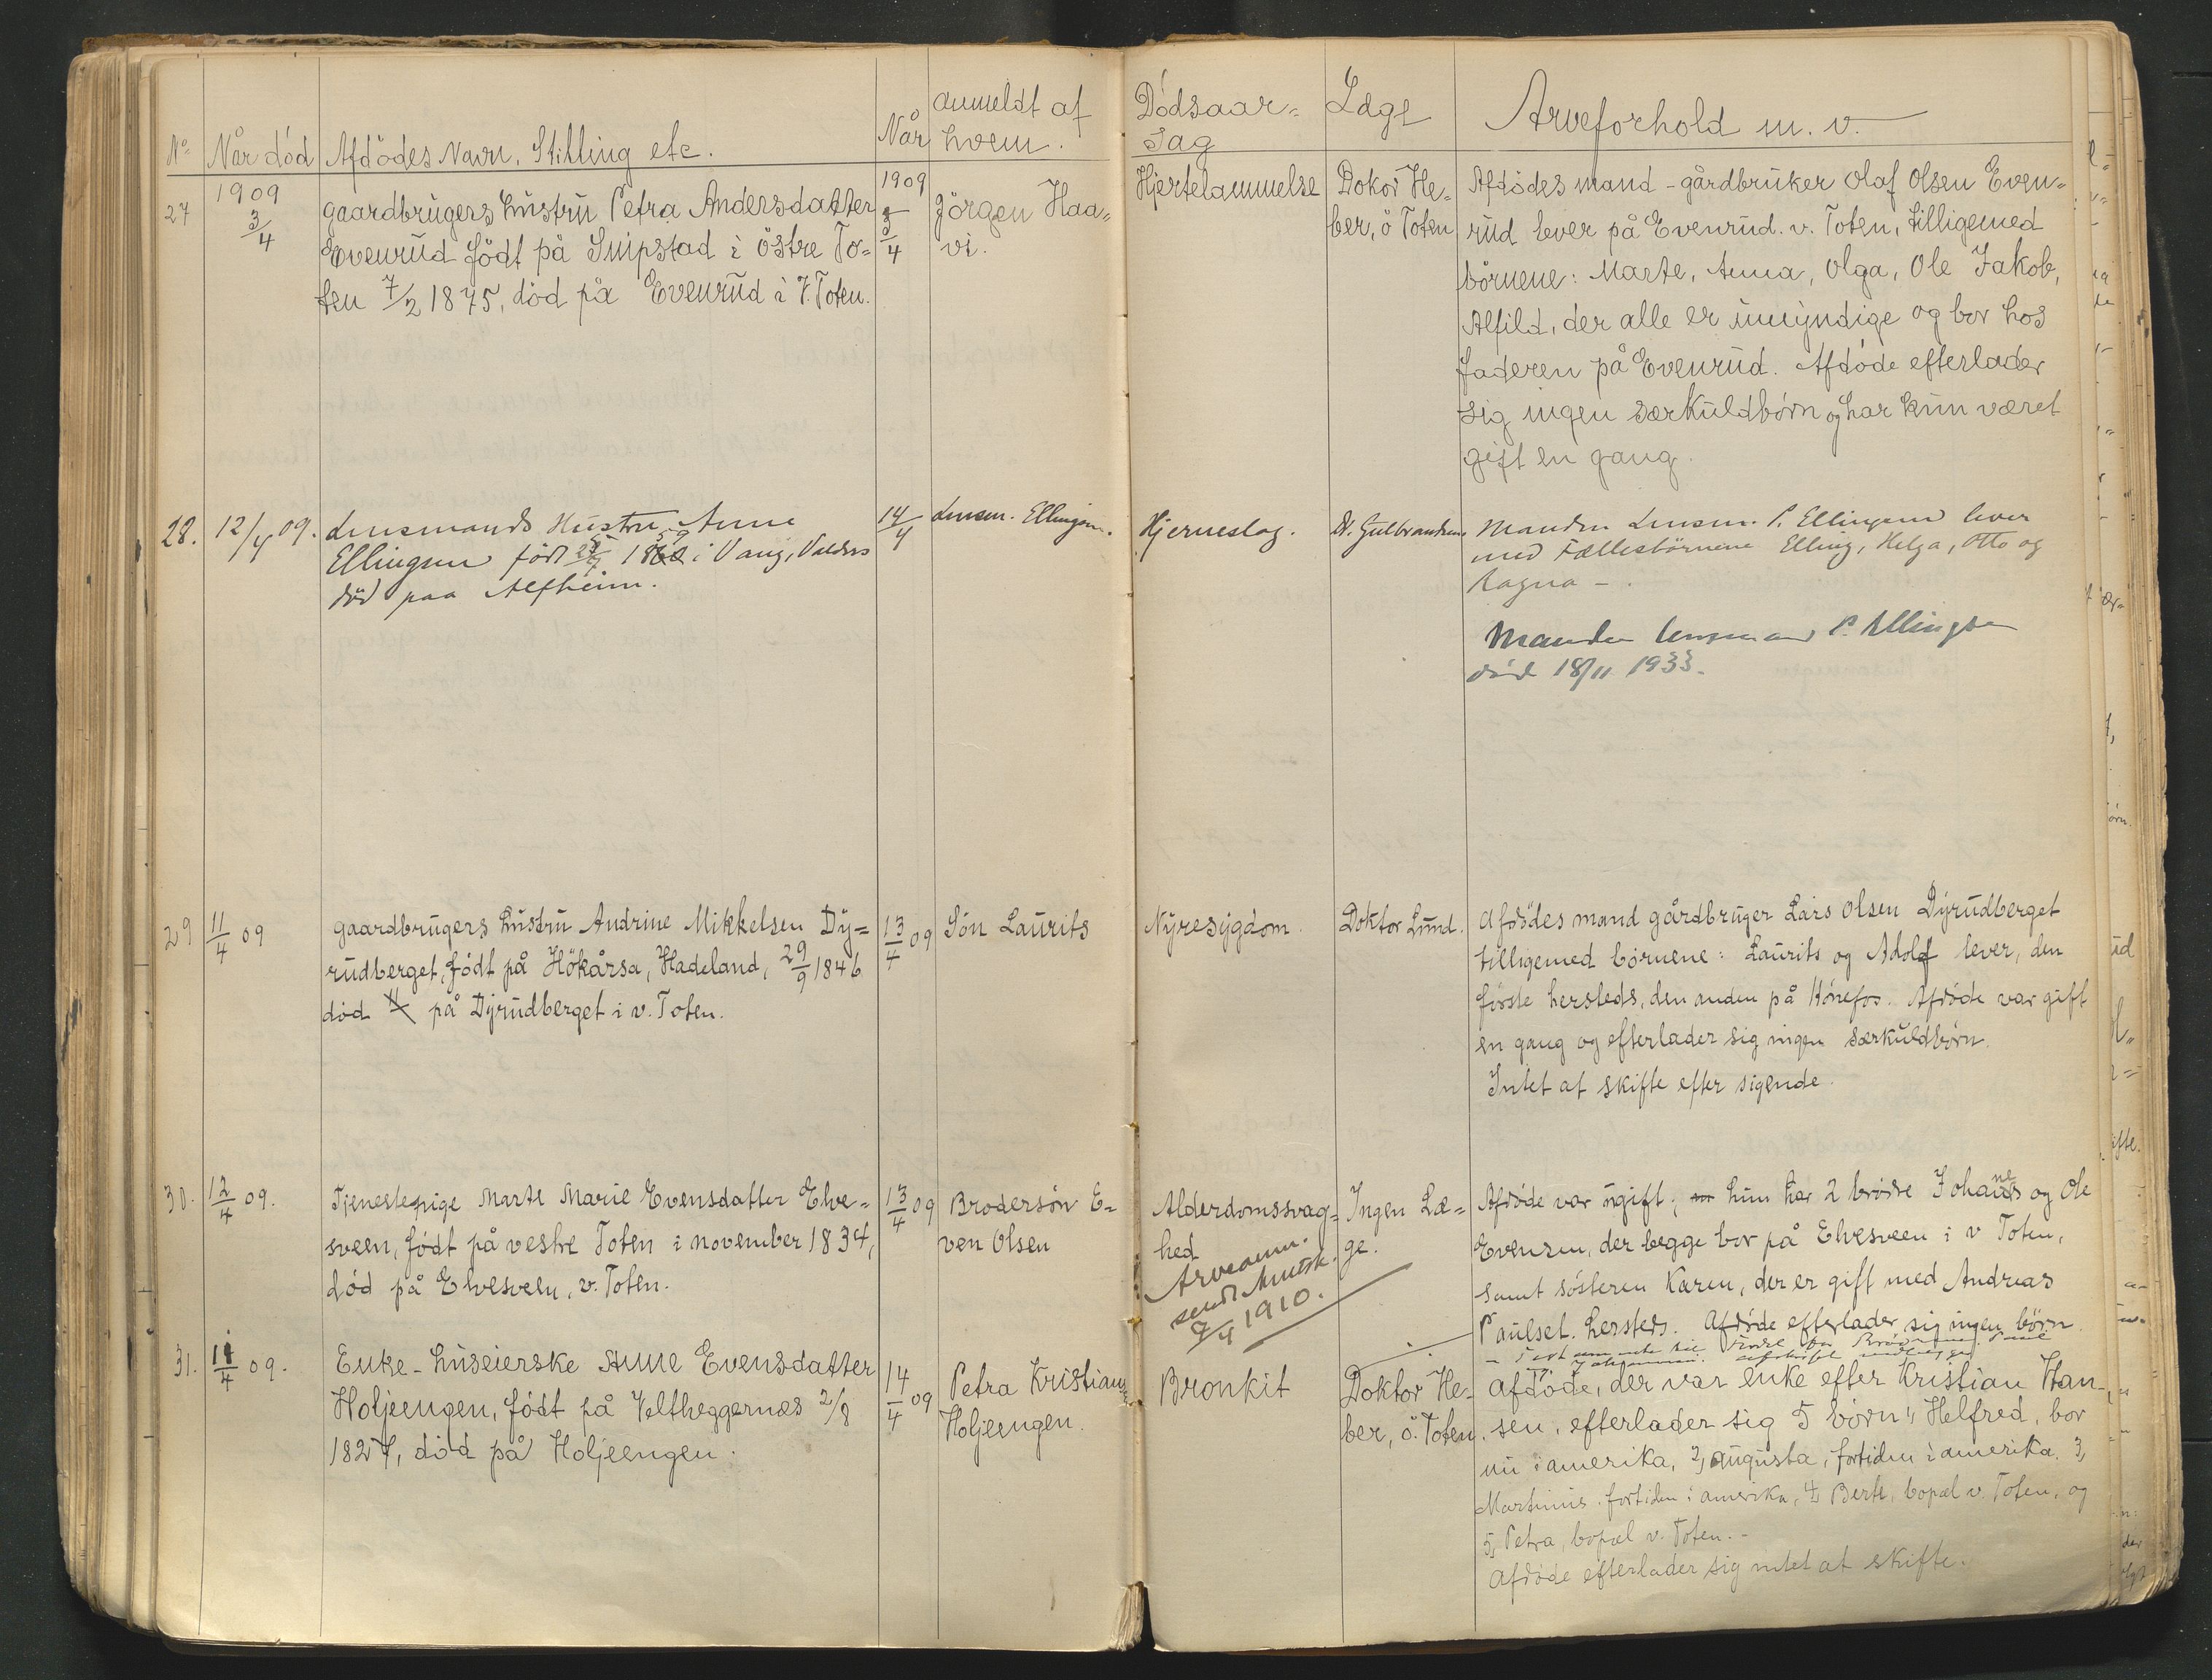 No Når död Afdödes Navn, Stilling etc. Når anmeldt af hvem. Dödsaarsag Læge Arveforhold m. v.
27 1909 3/4
gaardbrugers hustru Petra Andersdatter
Evenrud födt på Snipstad i östre To=
ten 7/2 1875, död på Evenrud i V. Toten.
1909 3/4
Jörgen Haa=
vi.
Hjertelammelse
Dokor He=
ber, ö Toten
Afdödes mand - gårdbruker Olaf Olsen Even=
rud lever på Evenrud. v. Toten, tilligemed
börnene: Marte, Anna, Olga, Ole Jakob,
Alfild, der alle er umyndige og bor hos
faderen på Evenrud. Afdöde efterlader
sig ingen særkuldbörn og har kun været
gift en gang.
28. 12/4 09.
Lensmands Hustru Anne
Ellingsen född 1859 i Vang, Valders
död paa Alfheim.
14/4
Lensm. Ellingsen.
Hjerneslag.
Dr. Gulbrandsen
Manden Lensm. P. Ellingsen lever
med Fællesbörnene Elling, Helga, Otto og
Ragna -.
Manden lensmand P. Ellingsen
död 18/11 1933.
29 11/4 09
gaardbrugers hustru Andrine Mikkelsen Dy=
rudberget, födt på Hökårsa, Hadeland, 29/9 1846
död på Dyrudberget i v. Toten.
13/4 09
Sön Laurits
Nyresygdom.
Doktor Lund.
Afdödes mand gårdbruger Lars Olsen Dyrudberget
tilligemed börnene: Laurits og Adolf lever, den
förste hersteds, den anden på Hönefos. Afdöde var gift
en gang og efterlader sig ingen særkuldbörn.
Intet at skifte efter sigende.
30. 12/4 09.
Tjenestepige Marte Marie Evensdatter Elve=
sveen, födt på vestre Toten i november 1834,
död på Elvesveen, v. Toten.
13/4 09
Brodersön E=
ven Olsen
Alderdomssvag=
hed
Arveanm.
sendt
9/4 1910.
Ingen Læ=
ge.
Afdöde var ugift; hun har 2 brödre Johannes og Ole
Evensen, der begge bor på Elvesveen i v Toten,
samt sösteren Karen, der er gift med Andreas
Paulset. hersteds. Afdöde efterlader sig ingen börn.
31. 14/4 09.
Enke - huseierske Anne Evensdatter
Holjeengen, födt på Veltheggernæs 2/8
1827, död på Holjeengen.
14/4 09
Petra Kristians=
Holjeengen.
Bronkit
Doktor He=
ber, ö. Toten.
Afdöde, der var enke efter Kristian Han-
sen, efterlader sig 5 börn: 1, Helfred, bor
nu i amerika, 2, Augusta, fortiden i amerika, 3,
Martinus, fortiden i amerika, 4, Berte, bopæl v. Toten, og
5, Petra, bopæl v. Toten. -
Afdöde efterlader sig intet at skifte.